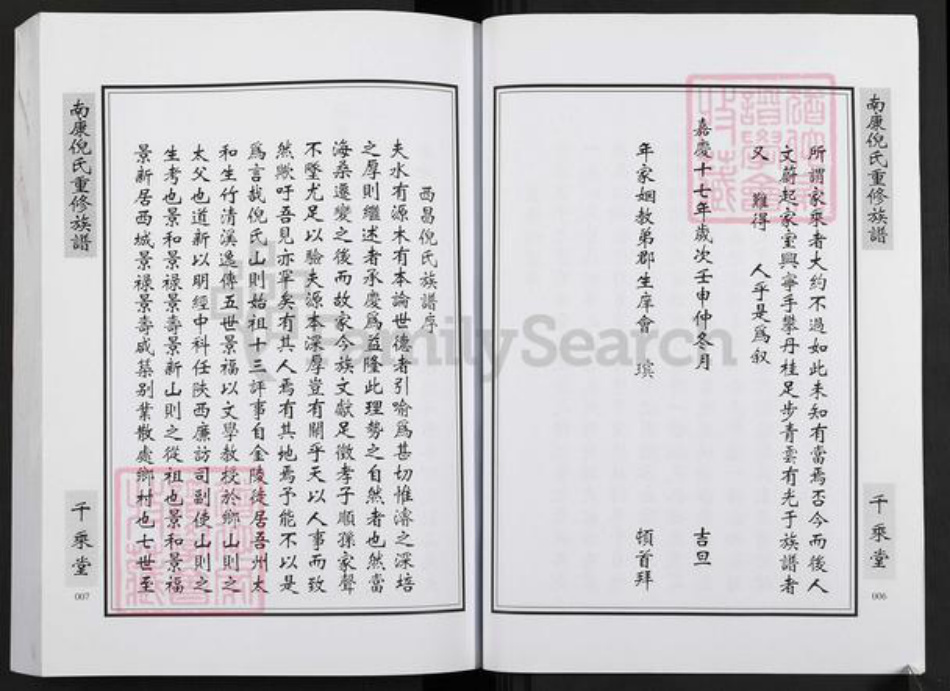 南康倪氏重修族譜
所謂家乘者大約不過如此未知有當焉否今而後人
文蔚起家室興寧手攀丹桂足步青雲有光于族譜者
又 難得 人乎是爲叙
嘉慶十七年歲次壬申仲冬月 吉旦
年家姻教弟郡生庠會 璸 頓首拜
千乘堂
006
南康倪氏重修族譜
西昌倪氏族譜序
夫水有源木有本論世德者引喻爲甚切惟濬之深培
之厚則繼述者承慶爲益隆此理勢之自然者也然當
海桑遷變之後而故家今族文獻足徵孝子順孫家聲
不墜尤足以驗夫源本深厚豈有關乎天以人事而致
然歟吁吾見亦罕矣有其人焉有其地焉予能不以是
爲言哉倪氏山則始祖十三評事自金陵徙居吾州太
和生竹清溪逸傳五世景福以文學教授於鄉山則之
太父也道新以明經中科任陝西廉訪司副使山則之
生考也景和景祿景壽景新山則之從祖也景和景福
景新居西城景祿景壽咸築别業散處鄉村也七世至
千乘堂
007
FamilySearch